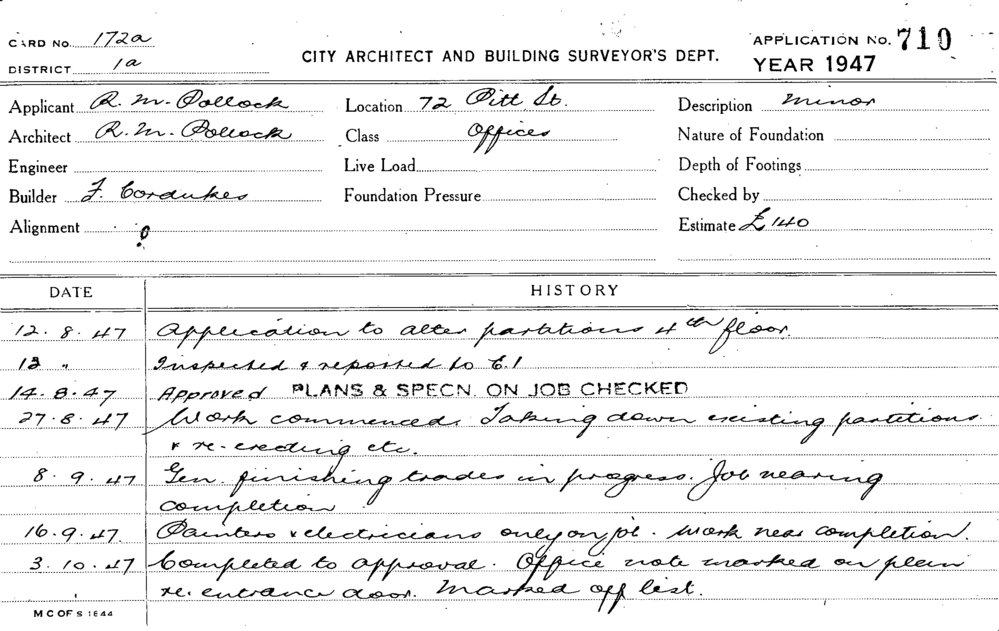 CARD No. 172a
DISTRICT 1a
CITY ARCHITECT AND BUILDING SURVEYOR'S DEPT.
APPLICATION No. 710
YEAR 1947
Applicant R. M. Pollock Location 72 Pitt St. Description Minor
Architect R. M. Pollock Class Offices Nature of Foundation
Engineer Live Load Depth of Footings
Builder F. Cordukes Foundation Pressure Checked by
Alignment Estimate £140
DATE HISTORY
12. 8. 47 Application to alter partitions 4th floor.
13 " Inspected & reported to E.I
14. 8. 47 Approved PLANS & SPECN. ON JOB CHECKED
27. 8. 47 Work commenced. Taking down existing partitions
& re-erecting etc.
8. 9. 47 Gen. finishing trades in progress. Job nearing
completion
16. 9. 47. Painters & electricians only on job. Work near completion.
3. 10. 47 Completed to approval. Office note marked on plan
re. entrance door. Marked off list.
M C OF S 1844